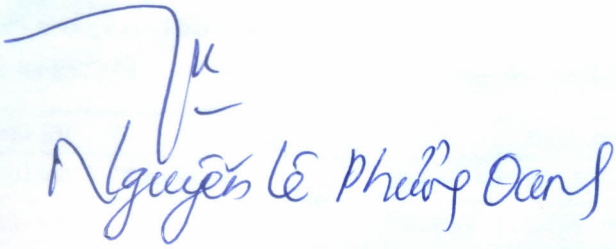 Nguyễn Lê Phương Oanh